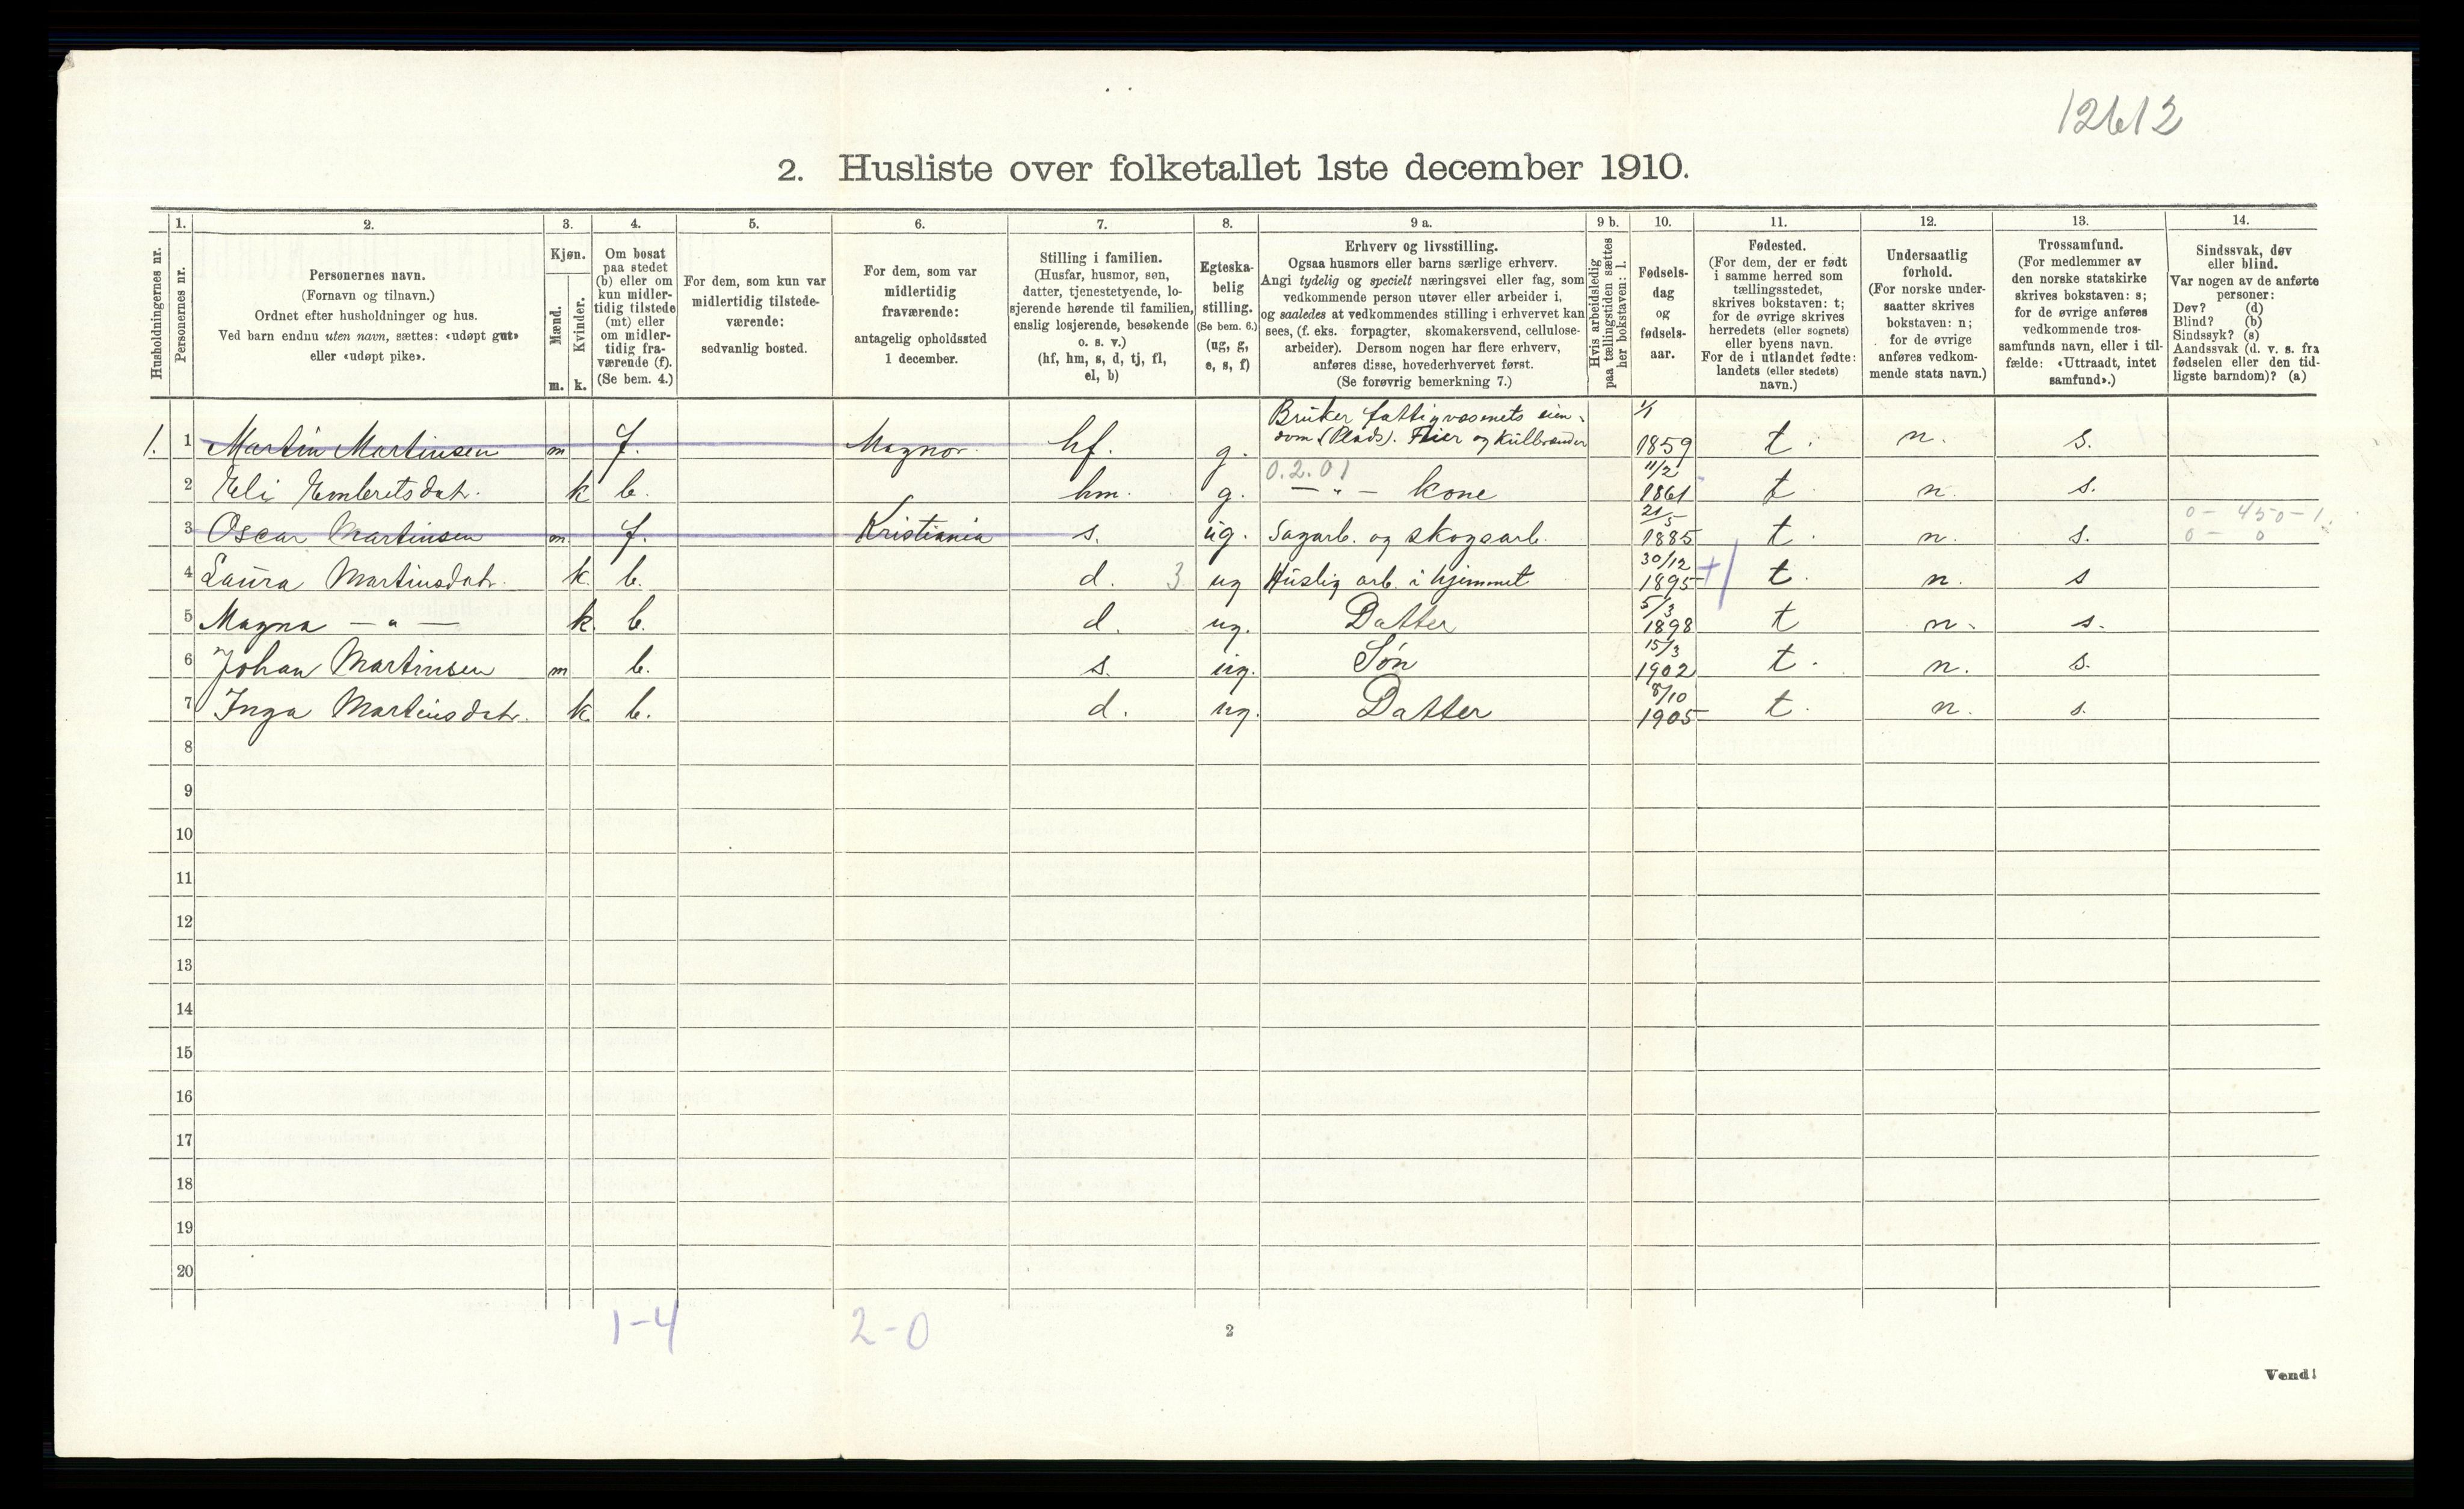 12612
2. Husliste over folketallet 1ste december 1910.
Husholdningernes nr.
1. Personernes nr.
2. Personernes navn.
(Fornavn og tilnavn.)
Ordnet efter husholdninger og hus.
Ved barn endnu uten navn, sættes: «udøpt gut»
eller «udøpt pike».
3. Kjøn.
Mænd. m.
Kvinder. k.
4. Om bosat
paa stedet
(b) eller om
kun midler-
tidig tilstede
(mt) eller
om midler-
tidig fra-
værende (f).
(Se bem. 4.)
5. For dem, som kun var
midlertidig tilstede-
værende:
sedvanlig bosted.
6. For dem, som var
midlertidig
fraværende:
antagelig opholdssted
1 december.
7. Stilling i familien.
(Husfar, husmor, søn,
datter, tjenestetyende, lo-
sjerende hørende til familien,
enslig losjerende, besøkende
o. s. v.)
(hf, hm, s, d, tj, fl,
el, b)
8. Egteska-
belig
stilling.
(Se bem. 6.)
(ug, g,
e, s, f)
9 a. Erhverv og livsstilling.
Ogsaa husmors eller barns særlige erhverv.
Angi tydelig og specielt næringsvei eller fag, som
vedkommende person utøver eller arbeider i,
og saaledes at vedkommendes stilling i erhvervet kan
sees, (f. eks. forpagter, skomakersvend, cellulose-
arbeider). Dersom nogen har flere erhverv,
anføres disse, hovederhvervet først.
(Se forøvrig bemerkning 7.)
9 b. Hvis arbeidsledig
paa tællingstiden sættes
her bokstaven: l.
10. Fødsels-
dag
og
fødsels-
aar.
11. Fødested.
(For dem, der er født
i samme herred som
tællingsstedet,
skrives bokstaven: t;
for de øvrige skrives
herredets (eller sognets)
eller byens navn.
For de i utlandet fødte:
landets (eller stedets)
navn.)
12. Undersaatlig
forhold.
(For norske under-
saatter skrives
bokstaven: n;
for de øvrige
anføres vedkom-
mende stats navn.)
13. Trossamfund.
(For medlemmer av
den norske statskirke
skrives bokstaven: s;
for de øvrige anføres
vedkommende tros-
samfunds navn, eller i til-
fælde: «Uttraadt, intet
samfund».)
14. Sindssvak, døv
eller blind.
Var nogen av de anførte
personer:
Døv? (d)
Blind? (b)
Sindssyk? (s)
Aandssvak (d. v. s. fra
fødselen eller den tid-
ligste barndom)? (a)
1. 1 Martin Martinsen m f. Magnor hf. g. Bruker fattigvæsnets eien-
dom (Plads). Feier og Kulbrænder 1/1 1859 t. n. s.
0.2.01
2 Eli Embretsdatr. k b. hm. g. — " — kone 11/2 1861 t n. s.
3 Oscar Martinsen m. f. Kristiania s. ug. Sagarb. og skogsarb. 21/5 1885 t. n. s. 0 - 450 - 1.
0 - 0
4 Laura Martinsdatr. k. b. d. 3 ug Huslig arb. i hjemmet 30/12 1895 t. n. s
5 Magna — " — k. b. d. ug. Datter 5/3 1898 t n. s.
6 Johan Martinsen m b. s. ug. Søn 15/3 1902 t. n. s.
7 Inga Martinsdatr. k b. d. ug. Datter 8/10 1905 t. n. s.
8
9
10
11
12
13
14
15
16
17
18
19
20
1-4 2-0
2
Vend!